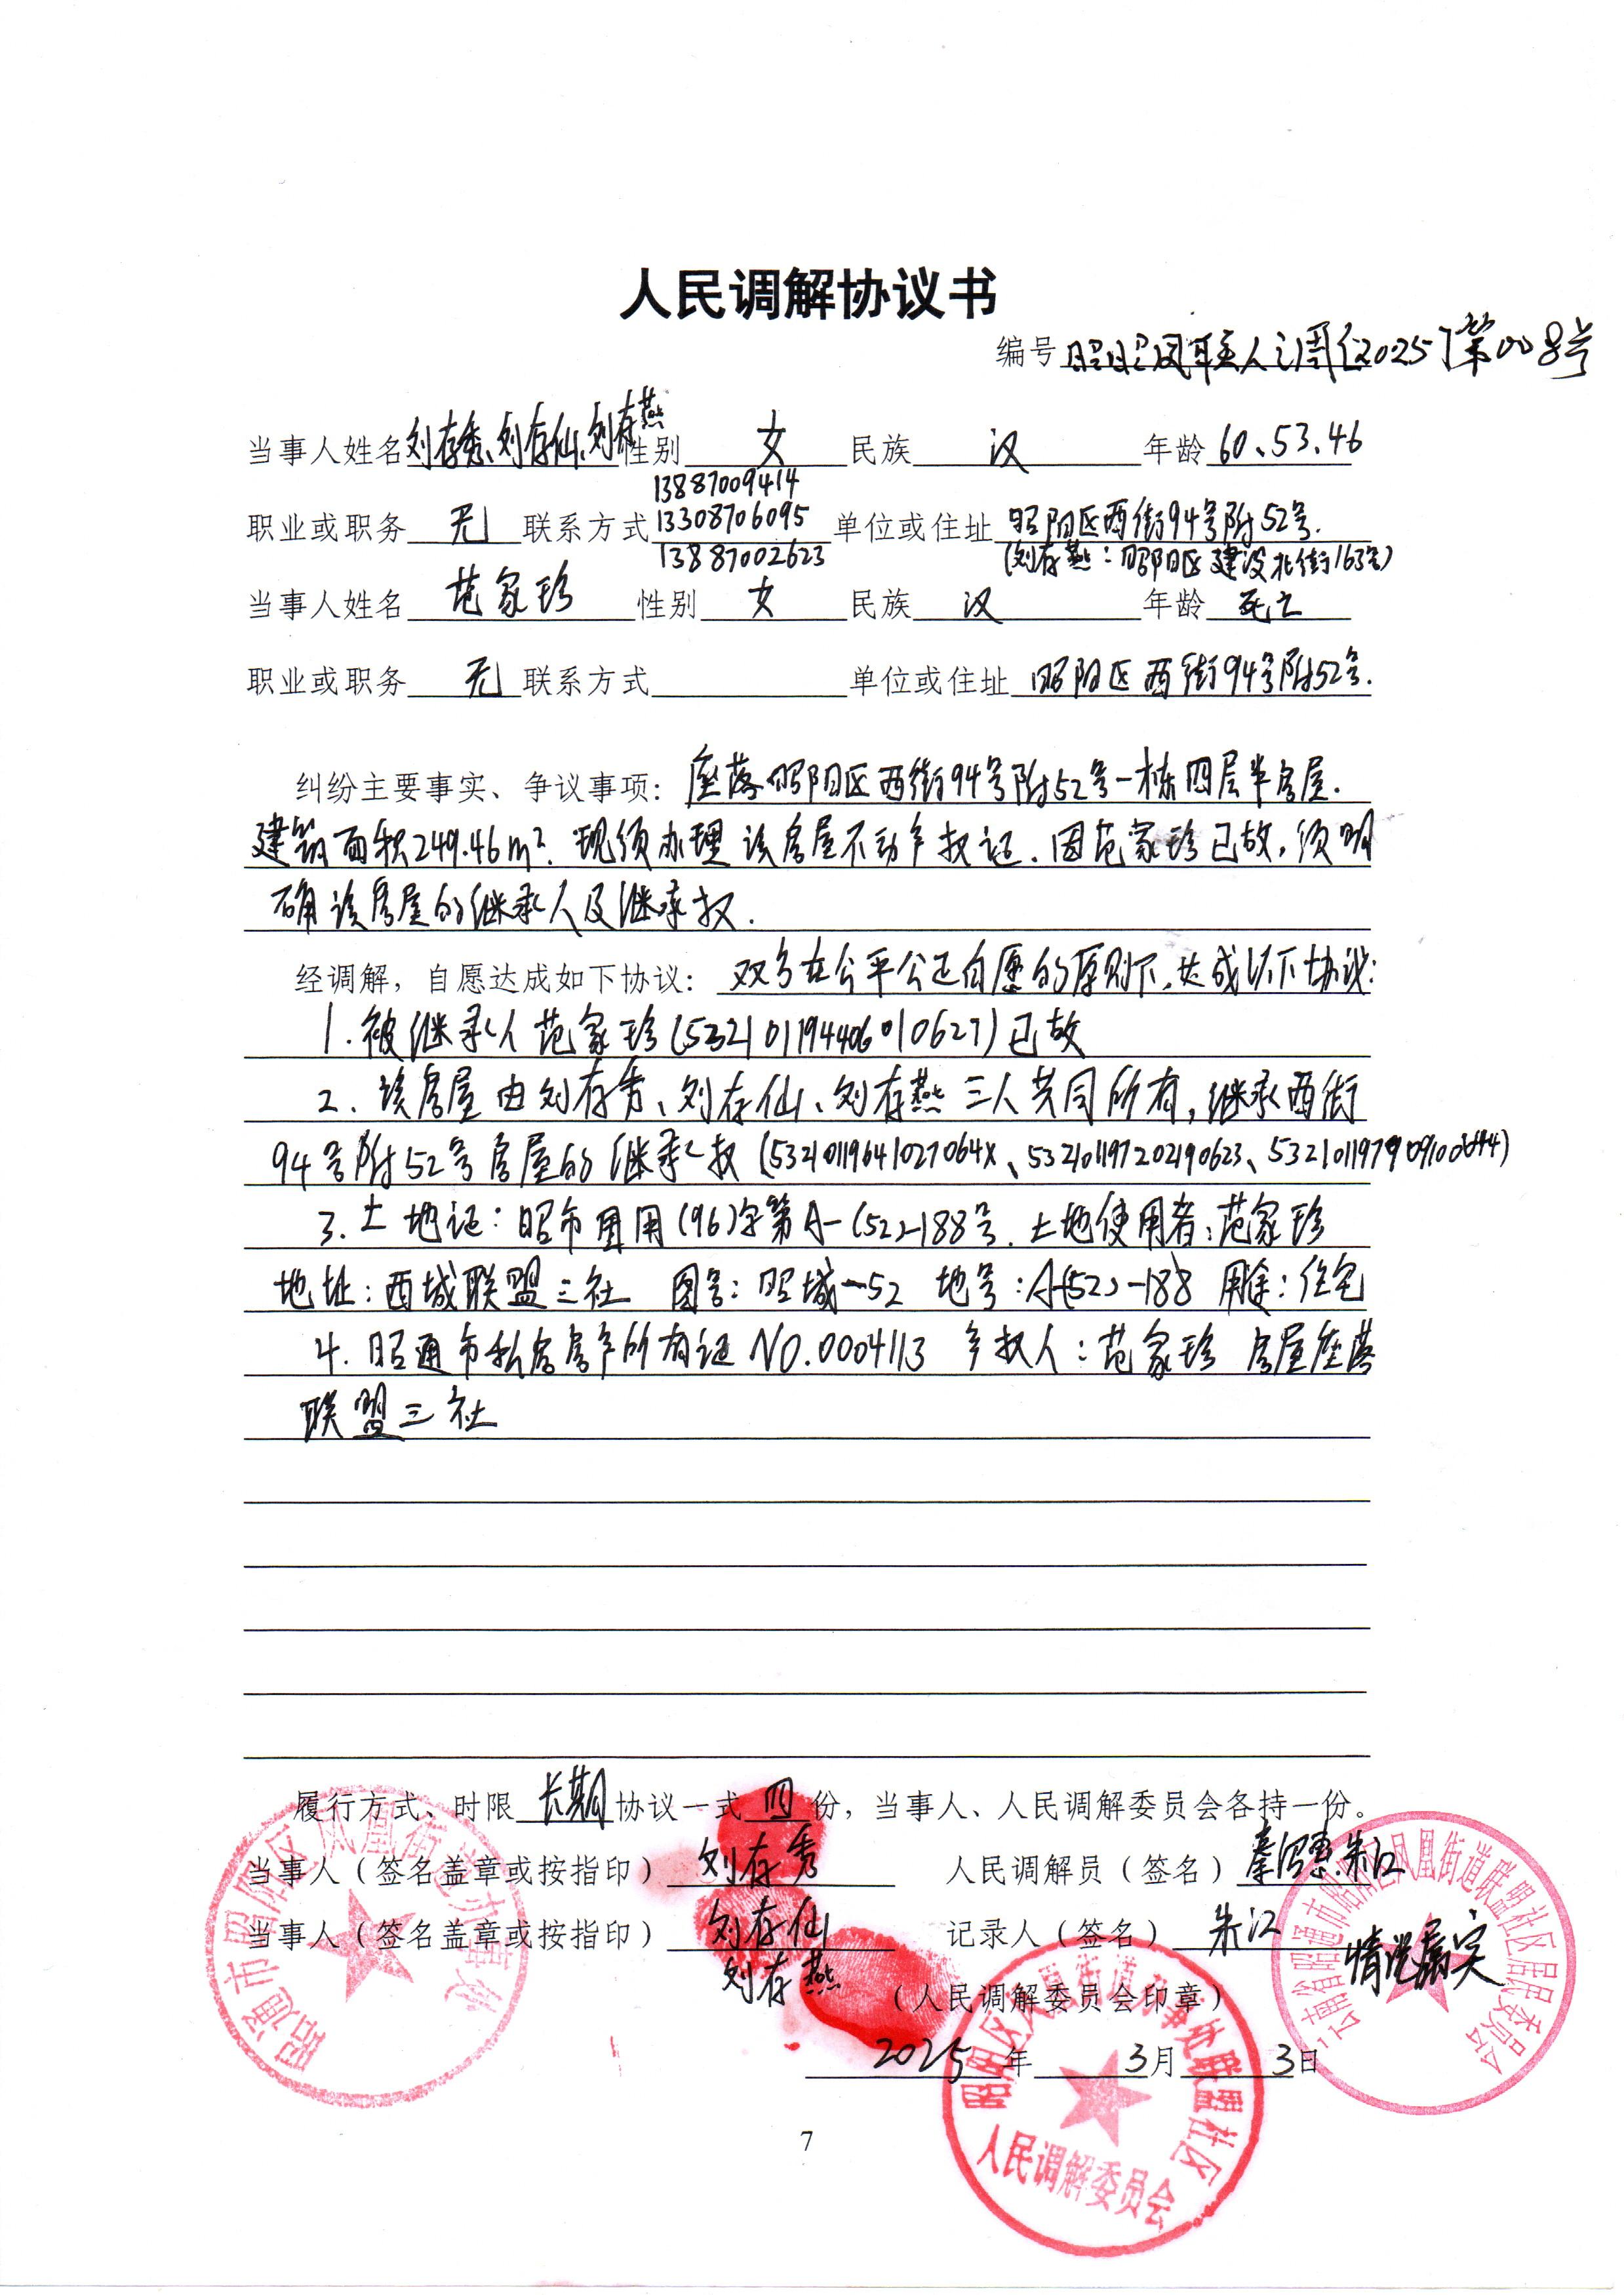 人民调解协议书
编号 昭昭凤联人调〔2025〕第008号
当事人姓名 刘存秀、刘存仙、刘存燕 性别 女 民族 汉 年龄 60、53、46
13887009414
职业或职务 无 联系方式 13308706095 单位或住址 昭阳区西街94号附52号.
13887002623 (刘存燕:昭阳区建设北街163号)
当事人姓名 范家珍 性别 女 民族 汉 年龄 死亡
职业或职务 无 联系方式 单位或住址 昭阳区西街94号附52号.
纠纷主要事实、争议事项: 座落昭阳区西街94号附52号一栋四层半房屋.
建筑面积249.46m². 现须办理该房屋不动产权证.因范家珍已故,须明
确该房屋的继承人及继承权.
经调解,自愿达成如下协议: 双方在公平公正自愿的原则下,达成以下协议:
1.被继承人范家珍(532101194406010627)已故
2.该房屋由刘存秀、刘存仙、刘存燕三人共同所有,继承西街
94号附52号房屋的继承权(53210119641027064X、532101197202190623、
3.土地证:昭市国用(96)字第A-(52)-188号.土地使用者:范家珍
地址:西城联盟三社 图号:昭城-52 地号:A-(52)-188 用途:住宅
4.昭通市私房房产所有证NO.0004113 产权人:范家珍 房屋座落
联盟三社
履行方式、时限 长期 协议一式 四 份,当事人、人民调解委员会各持一份。
当事人(签名盖章或按指印) 刘存秀 人民调解员(签名) 朱江
当事人(签名盖章或按指印) 刘存仙 记录人(签名) 朱江
刘存燕 情况属实
(人民调解委员会印章)
2025 年 3 月 3 日
昭通市昭阳区凤凰街道办事处
昭阳区凤凰街道办事处联盟社区
人民调解委员会
云南省昭通市昭阳区凤凰街道联盟社区居民委员会
7